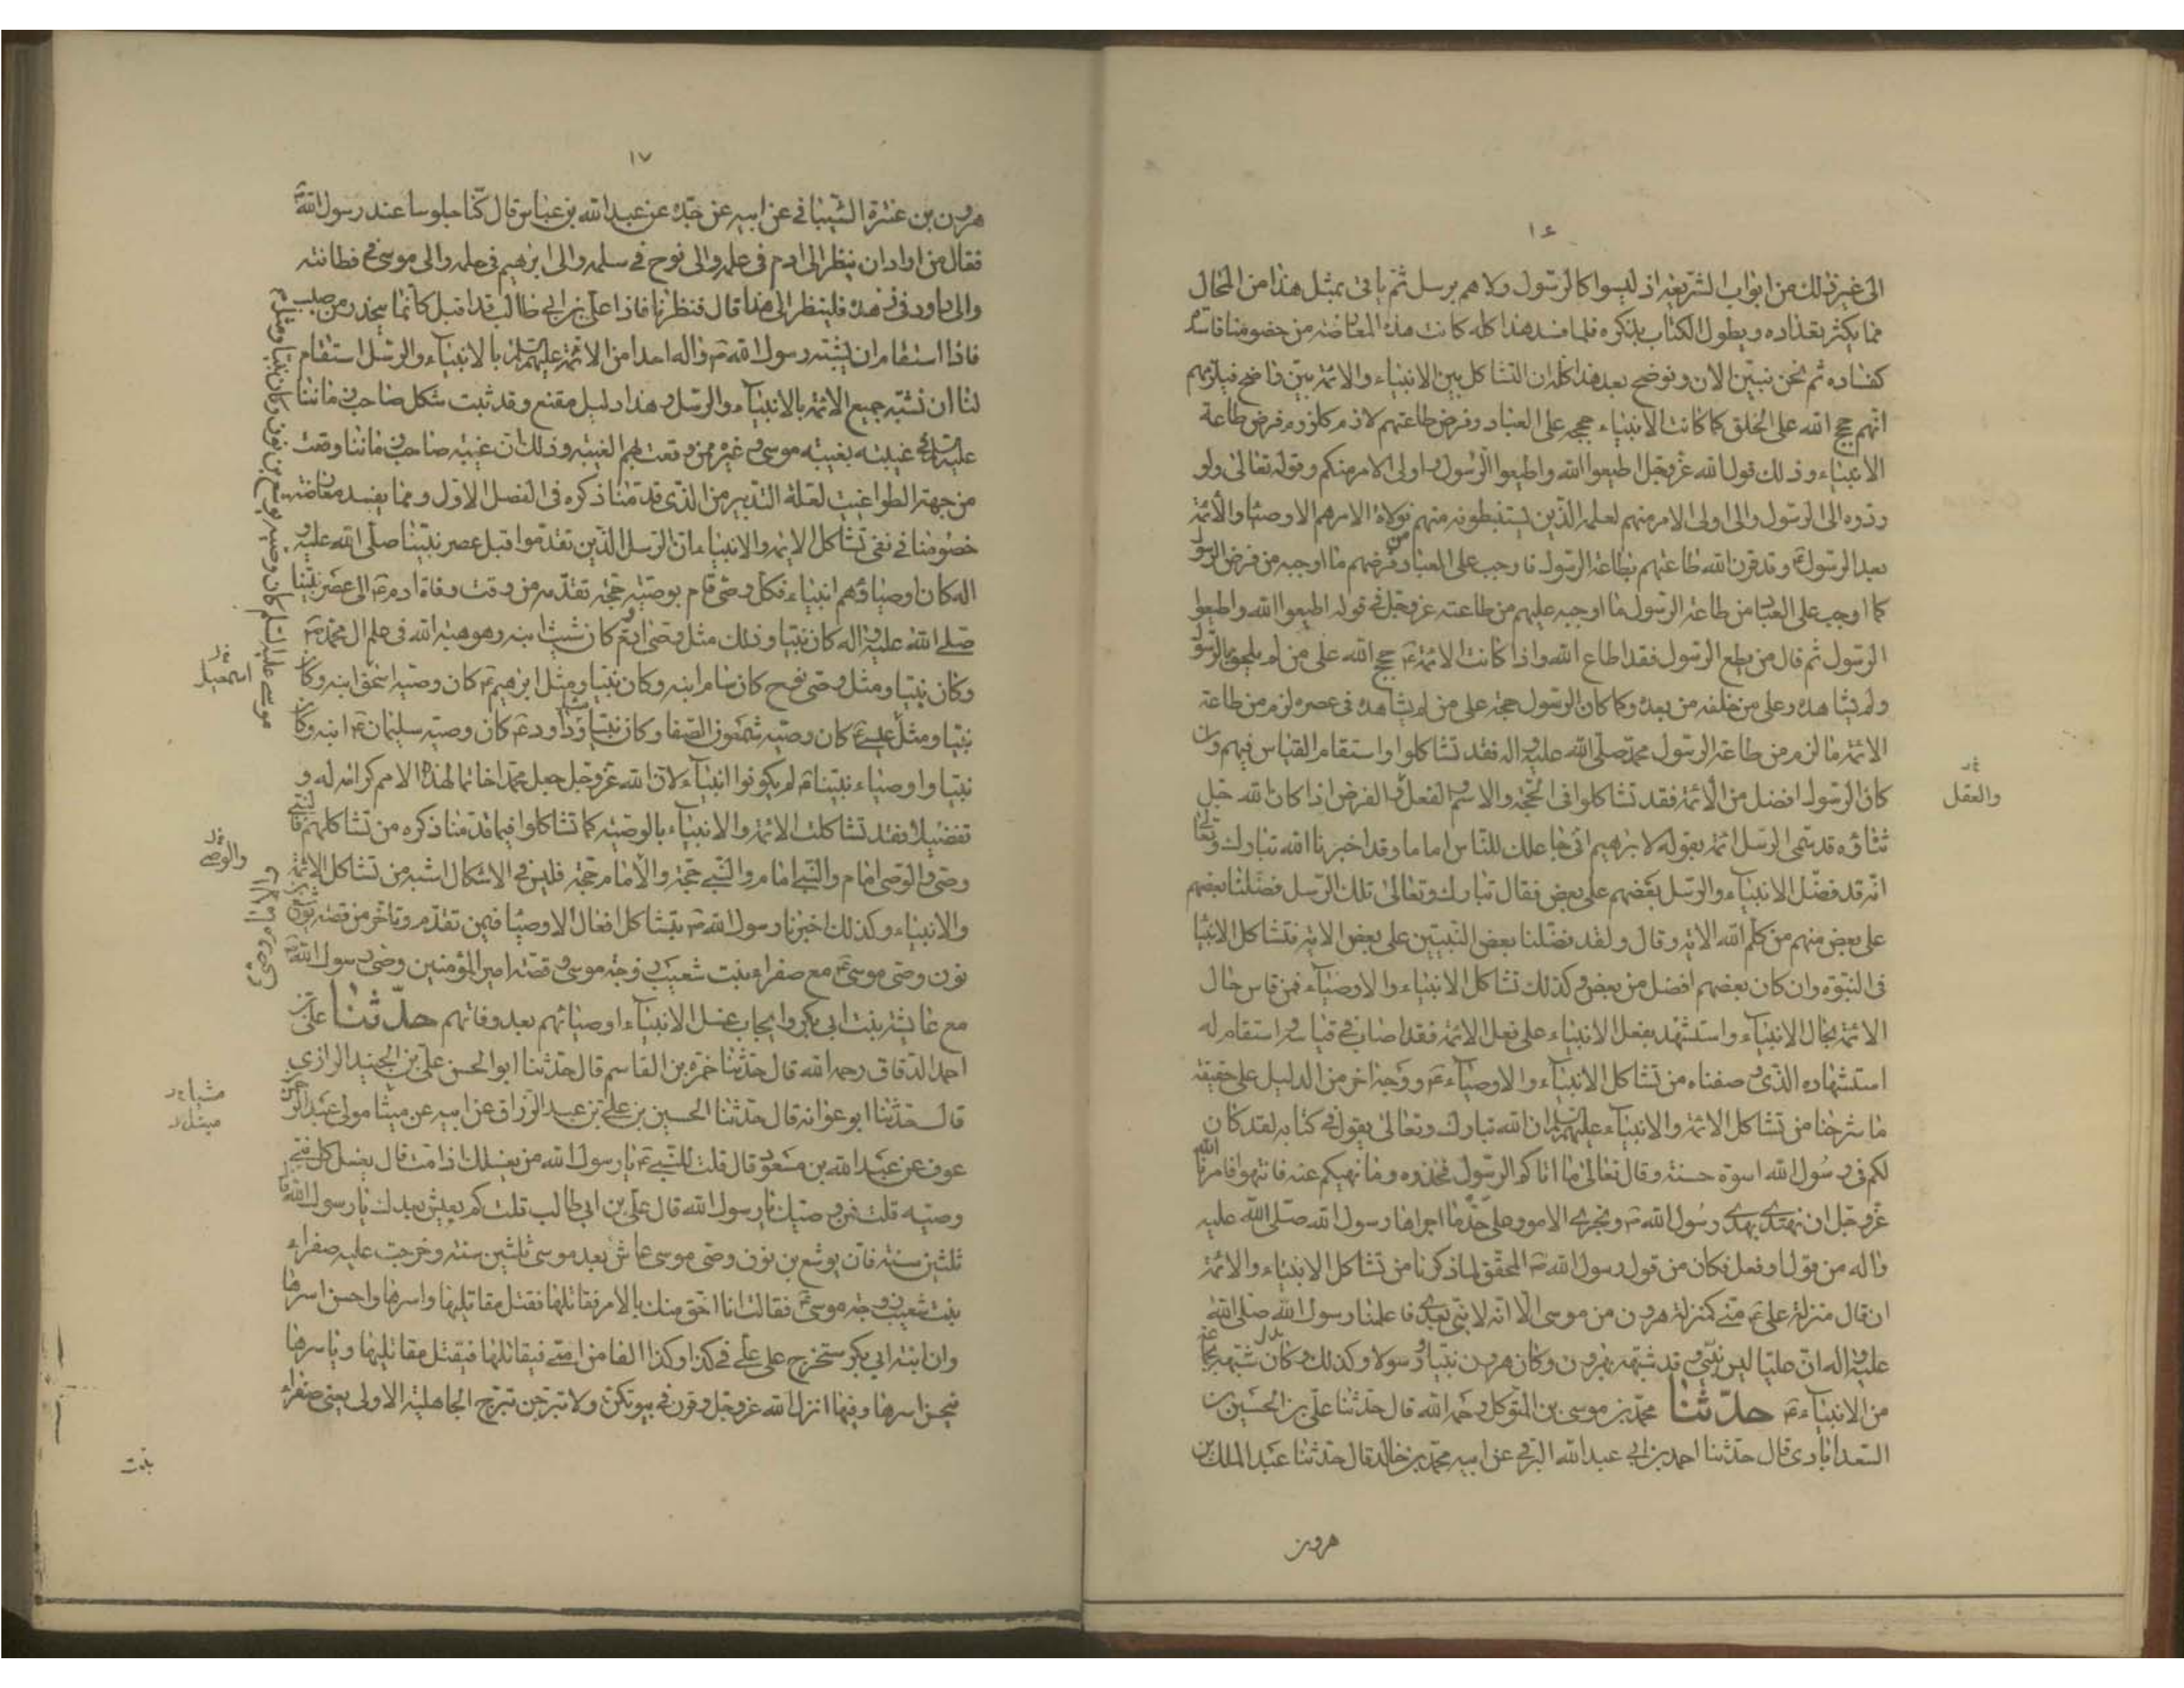 ١٦
الى غير ذلك من ابواب الشريعة اذ ليسوا كالرسول ولا هم برسل ثم ياتى بمثل هذا من المحال
مما يكثر تعداده ويطول الكتاب بذكره فلما فسد هذا كله كانت هذه المعارضة من خصومنا فاسدة
كفساده ثم نحن نبين الان ونوضح بعد هذا كله ان التشاكل بين الانبياء والائمة بين واضح فيلزمهم
انهم حجج الله على الخلق كما كانت الانبياء حججه على العباد وفرض طاعتهم لازم كلزوم فرض طاعة
الانبياء وذلك قول الله عز وجل اطيعوا الله واطيعوا الرسول واولى الامر منكم وقوله تعالى ولو
ردوه الى الرسول والى اولى الامر منهم لعلمه الذين يستنبطونه منهم فولاة الامر هم الاوصياء والأئمة
بعد الرسول ص وقد قرن الله طاعتهم بطاعة الرسول واوجب على العباد من فرضهم ما اوجبه من فرض الرسول
كما اوجب على العباد من طاعة الرسول ما اوجبه عليهم من طاعته عز وجل في قوله اطيعوا الله واطيعوا
الرسول ثم قال من يطع الرسول فقد اطاع الله واذا كانت الائمة ع حجج الله على من لم يلحق بالرسول
ولم يشاهده وعلى من خلفه من بعده وكما كان الرسول حجة على من لم يشاهده فى عصره لزم من طاعة
الائمة ما لزم من طاعة الرسول محمد صلى الله عليه واله فقد تشاكلوا واستقام القياس فيهم وان
كان الرسول افضل من الأئمة فقد تشاكلوا فى الحجة والاسم والفعل والفرض اذا كان الله جل
والعقل
ثناؤه قد سمى الرسل ائمة بقوله لابرهيم انى جاعلك للناس اماما وقد اخبرنا الله تبارك وتعالى
انه قد فضل الانبياء والرسل بعضهم على بعض فقال تبارك وتعالى تلك الرسل فضلنا بعضهم
على بعض منهم من كلم الله الاية وقال ولقد فضلنا بعض النبيين على بعض الاية فتشاكل الانبيا
فى النبوة وان كان بعضهم افضل من بعض وكذلك تشاكل الانبياء والاوصياء فمن قاس حال
الائمة بحال الانبياء واستشهد بفعل الانبياء على فعل الائمة فقد اصاب في قياسه واستقام له
استشهاده الذى وصفناه من تشاكل الانبياء والاوصياء ع ووجه اخر من الدليل على حقيقة
ما شرحنا من تشاكل الائمة والانبياء عليهم السلام ان الله تبارك وتعالى يقول في كتابه لقد كان
لكم فى رسول الله اسوة حسنة وقال تعالى ما اتاكم الرسول فخذوه وما نهيكم عنه فانتهوا فامرنا الله
عز وجل ان نهتدى بهدى رسول الله ص ونجرى الامور على حد ما اجراها رسول الله صلى الله عليه
واله من قول او فعل فكان من قول رسول الله ص المحقق لما ذكرنا من تشاكل الانبياء والائمة
ان قال منزلة على ع منى كمنزلة هرون من موسى الا انه لا نبى بعدى فاعلمنا رسول الله صلى الله
عليه واله ان عليا ليس بنبى وقد شبهه بهرون وكان هرون نبيا ورسولا وكذلك وكان شبهه بجماعة
من الانبياء ع حدثنا محمد بن موسى بن المتوكل رحمه الله قال حدثنا على بن الحسين
السعد ابادى قال حدثنا احمد بن ابى عبد الله البرقى عن ابيه محمد بن خالد قال حدثنا عبد الملك بن
هرون
١٧
هرون بن عنترة الشيبانى عن ابيه عن جده عن عبد الله بن عباس قال كنا جلوسا عند رسول الله ص
فقال من اراد ان ينظر الى ادم فى علمه والى نوح فى سلمه والى ابرهيم فى حلمه والى موسى في فطانته
والى داود فى زهده فلينظر الى هذا قال فنظرنا فاذا على بن ابى طالب قد اقبل كانما ينحدر من صلب
فاذا استقام ان يشبه رسول الله ص واله احدا من الائمة عليهم السلام بالانبياء والرسل استقام
لنا ان نشبه جميع الائمة بالانبياء والرسل وهذا دليل مقنع وقد ثبت شكل صاحب زماننا
عليه السلام في غيبته بغيبة موسى ع وغيره ممن وقعت بهم الغيبة وذلك ان غيبة صاحب زماننا وقعت
من جهة الطواغيت لعلة التدبير من الذى قدمنا ذكره فى الفصل الاول ومما يفسد معارضة
خصومنا في نفى تشاكل الائمة والانبياء ان الرسل الذين تقدموا قبل عصر نبينا صلى الله عليه و
اله كان اوصياؤهم انبياء فكل وصى قام بوصية حجة تقدمه من وقت وفاة ادم ع الى عصر نبينا
صلى الله عليه واله كان نبيا وذلك مثل وصى ادم كان شيث ابنه وهو هبة الله فى علم ال محمد ص
وكان نبيا ومثل وصى نوح كان سام ابنه وكان نبيا ومثل ابرهيم ع كان وصيه اسحق ابنه وكان
اسمعيل
نبيا ومثل عيسى ع كان وصيه شمعون الصفا وكان نبيا ومثل داود ع كان وصيه سليمان ع ابنه وكان
نبيا واوصياء نبينا ص لم يكونوا انبياء لان الله عز وجل جعل محمدا خاتما لهذه الامم كرامة له و
تفضيلا فقد تشاكلت الائمة والانبياء بالوصية كما تشاكلوا فيما قدمنا ذكره من تشاكلهم فالنبى
والوصى
وصى والوصى امام والنبى امام والنبى حجة والأمام حجة فليس في الاشكال اشبه من تشاكل الائمة
والانبياء وكذلك اخبرنا رسول الله ص بتشاكل افعال الاوصيا فيمن تقدم وتاخر من قصة يوشع بن
نون وصى موسى ع مع صفراء بنت شعيب زوجة موسى وقصة امير المؤمنين وصى رسول الله ص
مع عايشة بنت ابى بكر وايجاب غسل الانبياء اوصيائهم بعد وفاتهم حدثنا على بن
احمد الدقاق رحمه الله قال حدثنا حمزة بن القاسم قال حدثنا ابو الحسن على بن الجنيد الرازى
قال حدثنا ابو عوانة قال حدثنا الحسين بن على بن عبد الرزاق عن ابيه عن ميثا مولى عبد الرحمن
عوف عن عبد الله بن مسعود قال قلت للنبى ع يا رسول الله من يغسلك اذا مت قال يغسل كل نبى
وصيه قلت فمن وصيك يا رسول الله قال على بن ابى طالب قلت كم يعيش بعدك يا رسول الله قال
ثلثين سنة فان يوشع بن نون وصى موسى عاش بعد موسى ثلثين سنة وخرجت عليه صفراء
بنت شعيب زوجة موسى ع فقالت انا احق منك بالامر فقاتلها فقتل مقاتليها واسرها واحسن اسرها
وان ابنة ابى بكر ستخرج على على في كذا وكذا الفا من امتى فيقاتلها فيقتل مقاتليها وياسرها
فيحسن اسرها وفيها انزل الله عز وجل وقرن في بيوتكن ولا تبرجن تبرج الجاهلية الاولى يعنى صفراء
بنت
موسى عليه السلام كان وصيه يوشع بن نون وكان نبيا ومثل